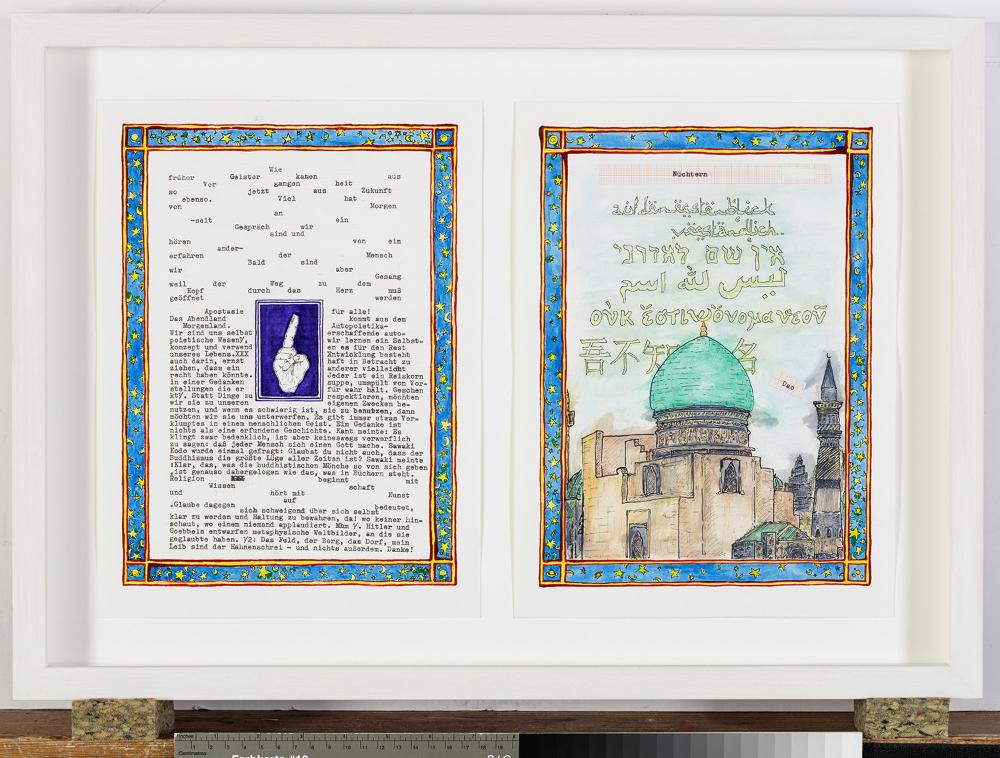 Wie
früher Geister kamen aus
Ver gangen heit
so jetzt aus Zukunft
ebenso. Viel hat
von Morgen
an
-seit ein
Gespräch wir
sind und
hören von ein
ander-
erfahren der Mensch
Bald sind
wir aber
Gesang
weil der Weg zu dem
Kopf durch das Herz muß
geöffnet werden
Apostasie
Das Abendland
Morgenland.
Wir sind uns selbst
poietische Wesen
konzept und verwend
unseres Lebens.XXX
auch darin, ernst
ziehen, dass ein
recht haben könnte.
in einer Gedanken
stellungen die er
Statt Dinge zu
wir sie zu unseren
für alle!
kommt aus dem
Autopoietika-
erschaffende auto-
wir lernen ein Selbst-
en es für den Rest
Entwicklung besteht
haft in Betracht zu
anderer vielleicht
Jeder ist ein Reiskorn
suppe, umspült von Vor-
für wahr hält. Geschen
respektieren, möchten
eigenen Zwecken be-
nutzen, und wenn es schwierig ist, sie zu benutzen, dann
möchten wir sie uns unterwerfen. Es gibt immer etwas Ver-
klumptes in einem menschlichen Geist. Ein Gedanke ist
nichts als eine erfundene Geschichte. Kant meinte: Es
klingt zwar bedenklich, ist aber keineswegs verwerflich
zu sagen: daß jeder Mensch sich einen Gott mache. Sawaki
Kodo wurde einmal gefragt: Glaubst du nicht auch, dass der
Buddhismus die größte Lüge aller Zeiten ist? Sawaki meinte
:Klar, das, was die buddhistischen Mönche so von sich geben
,ist genauso dahergelogen wie das, was in Büchern steht.
Religion beginnt mit
Wissen schaft
und hört mit Kunst
auf
.Glaube dagegen bedeutet,
sich schweigend über sich selbst
klar zu werden und Haltung zu bewahren, da! wo keiner hin-
schaut, wo einem niemand applaudiert. Hitler und
Goebbels entwarfen metaphysische Weltbilder, an die sie
geglaubt haben. Das Feld, der Berg, das Dorf, mein
Leib sind der Hahnenschrei - und nichts außerdem. Danke!
Nüchtern
auf den ersten blick
verständlich.
אין שם לאדוני
ليس لله اسم
οὐκ ἔστιν ὄνομα θεοῦ
吾不知 名
Dao
Inches
Centimetres
Farbkarte #13